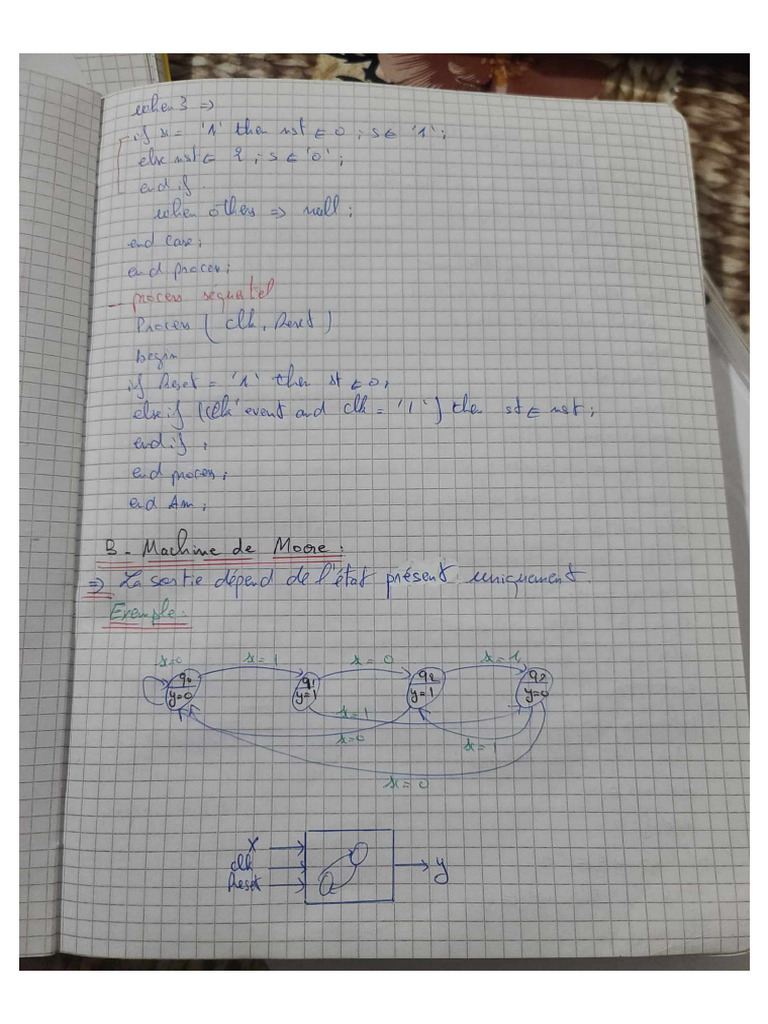 when 3 =>
if x = '1' then nst <= 0 ; s <= '1' ;
else nst <= 2 ; s <= '0' ;
end if.
when others => null ;
end case ;
end process ;
- process sequetiel
Process ( clk, Reset )
begin
if Reset = '1' then st <= 0 ;
else if (clk' event and clk = '1') then st <= nst ;
end if ;
end process ;
end Am ;
B - Machine de Moore :
=> La sortie dépend de l'état présent uniquement
Exemple :
x=0 x = 1 x = 0 x = 1
q0 q1 q2 q3
y=0 y=1 y=1 y=0
x=1
x=0 x=1
x = 0
X
clk
Reset
y